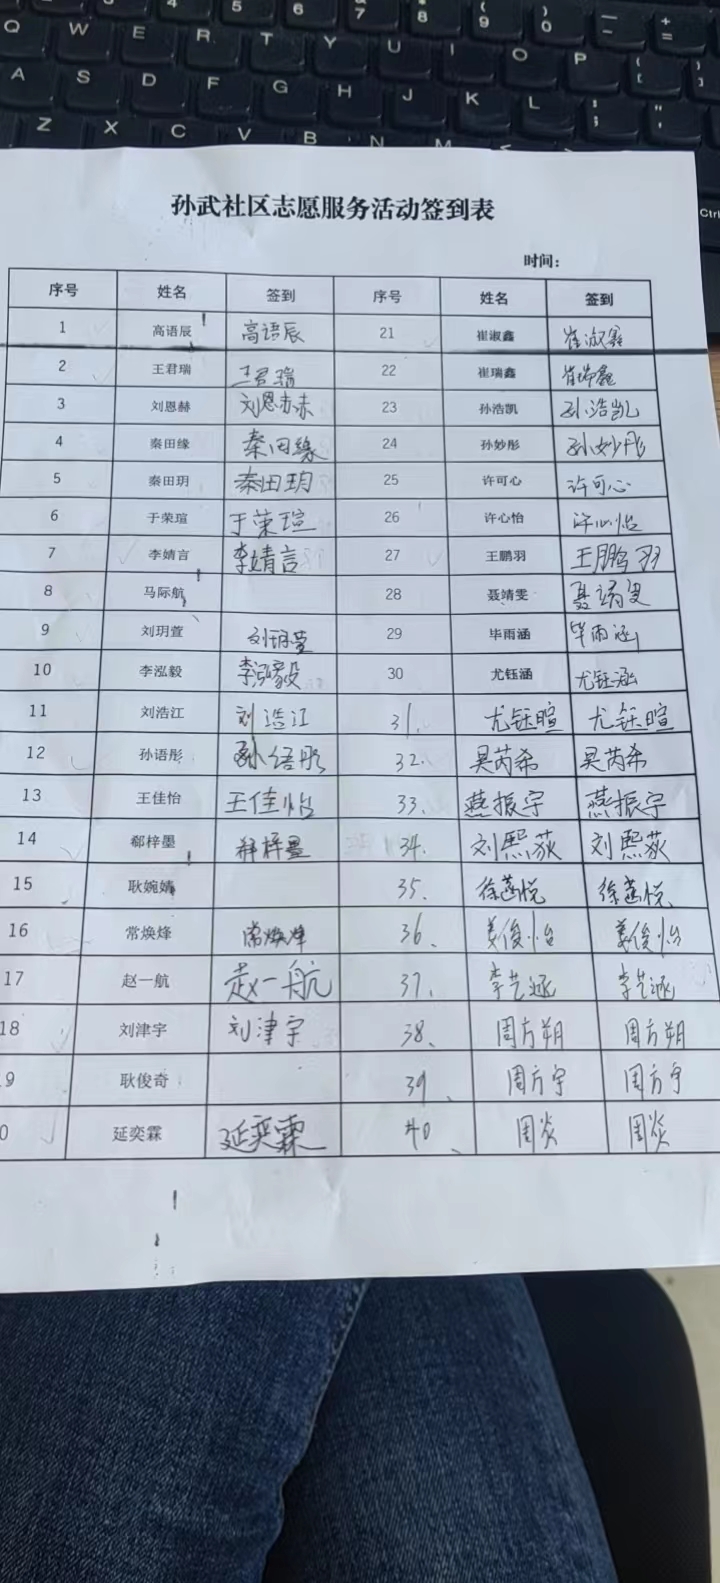 Q W E R T Y U I O P
A S D F G H J K L
Z X C V B N M
Ctrl
孙武社区志愿服务活动签到表
时间：
序号 姓名 签到 序号 姓名 签到
1 高语辰 高语辰 21 崔淑鑫 崔淑鑫
2 王君瑞 王君瑞 22 崔瑞鑫 崔瑞鑫
3 刘恩赫 刘恩赫 23 孙浩凯 孙浩凯
4 秦田缘 秦田缘 24 孙妙彤 孙妙彤
5 秦田玥 秦田玥 25 许可心 许可心
6 于荣瑄 于荣瑄 26 许心怡 许心怡
7 李婧言 李婧言 27 王鹏羽 王鹏羽
8 马际航 28 聂靖雯 聂靖雯
9 刘玥萱 刘玥萱 29 毕雨涵 毕雨涵
10 李泓毅 李泓毅 30 尤钰涵 尤钰涵
11 刘浩江 刘浩江 31. 尤钰暄 尤钰暄
12 孙语彤 孙语彤 32. 吴芮希 吴芮希
13 王佳怡 王佳怡 33. 燕振宇 燕振宇
14 郗梓墨 郗梓墨 34. 刘熙荻 刘熙荻
15 耿婉婧 35. 徐菡悦 徐菡悦
16 常焕烽 常焕烽 36、 姜俊怡 姜俊怡
17 赵一航 赵一航 37. 李艺涵 李艺涵
18 刘津宇 刘津宇 38、 周方朔 周方朔
9 耿俊奇 39、 周方宇 周方宇
0 延奕霖 延奕霖 40、 周炎 周炎